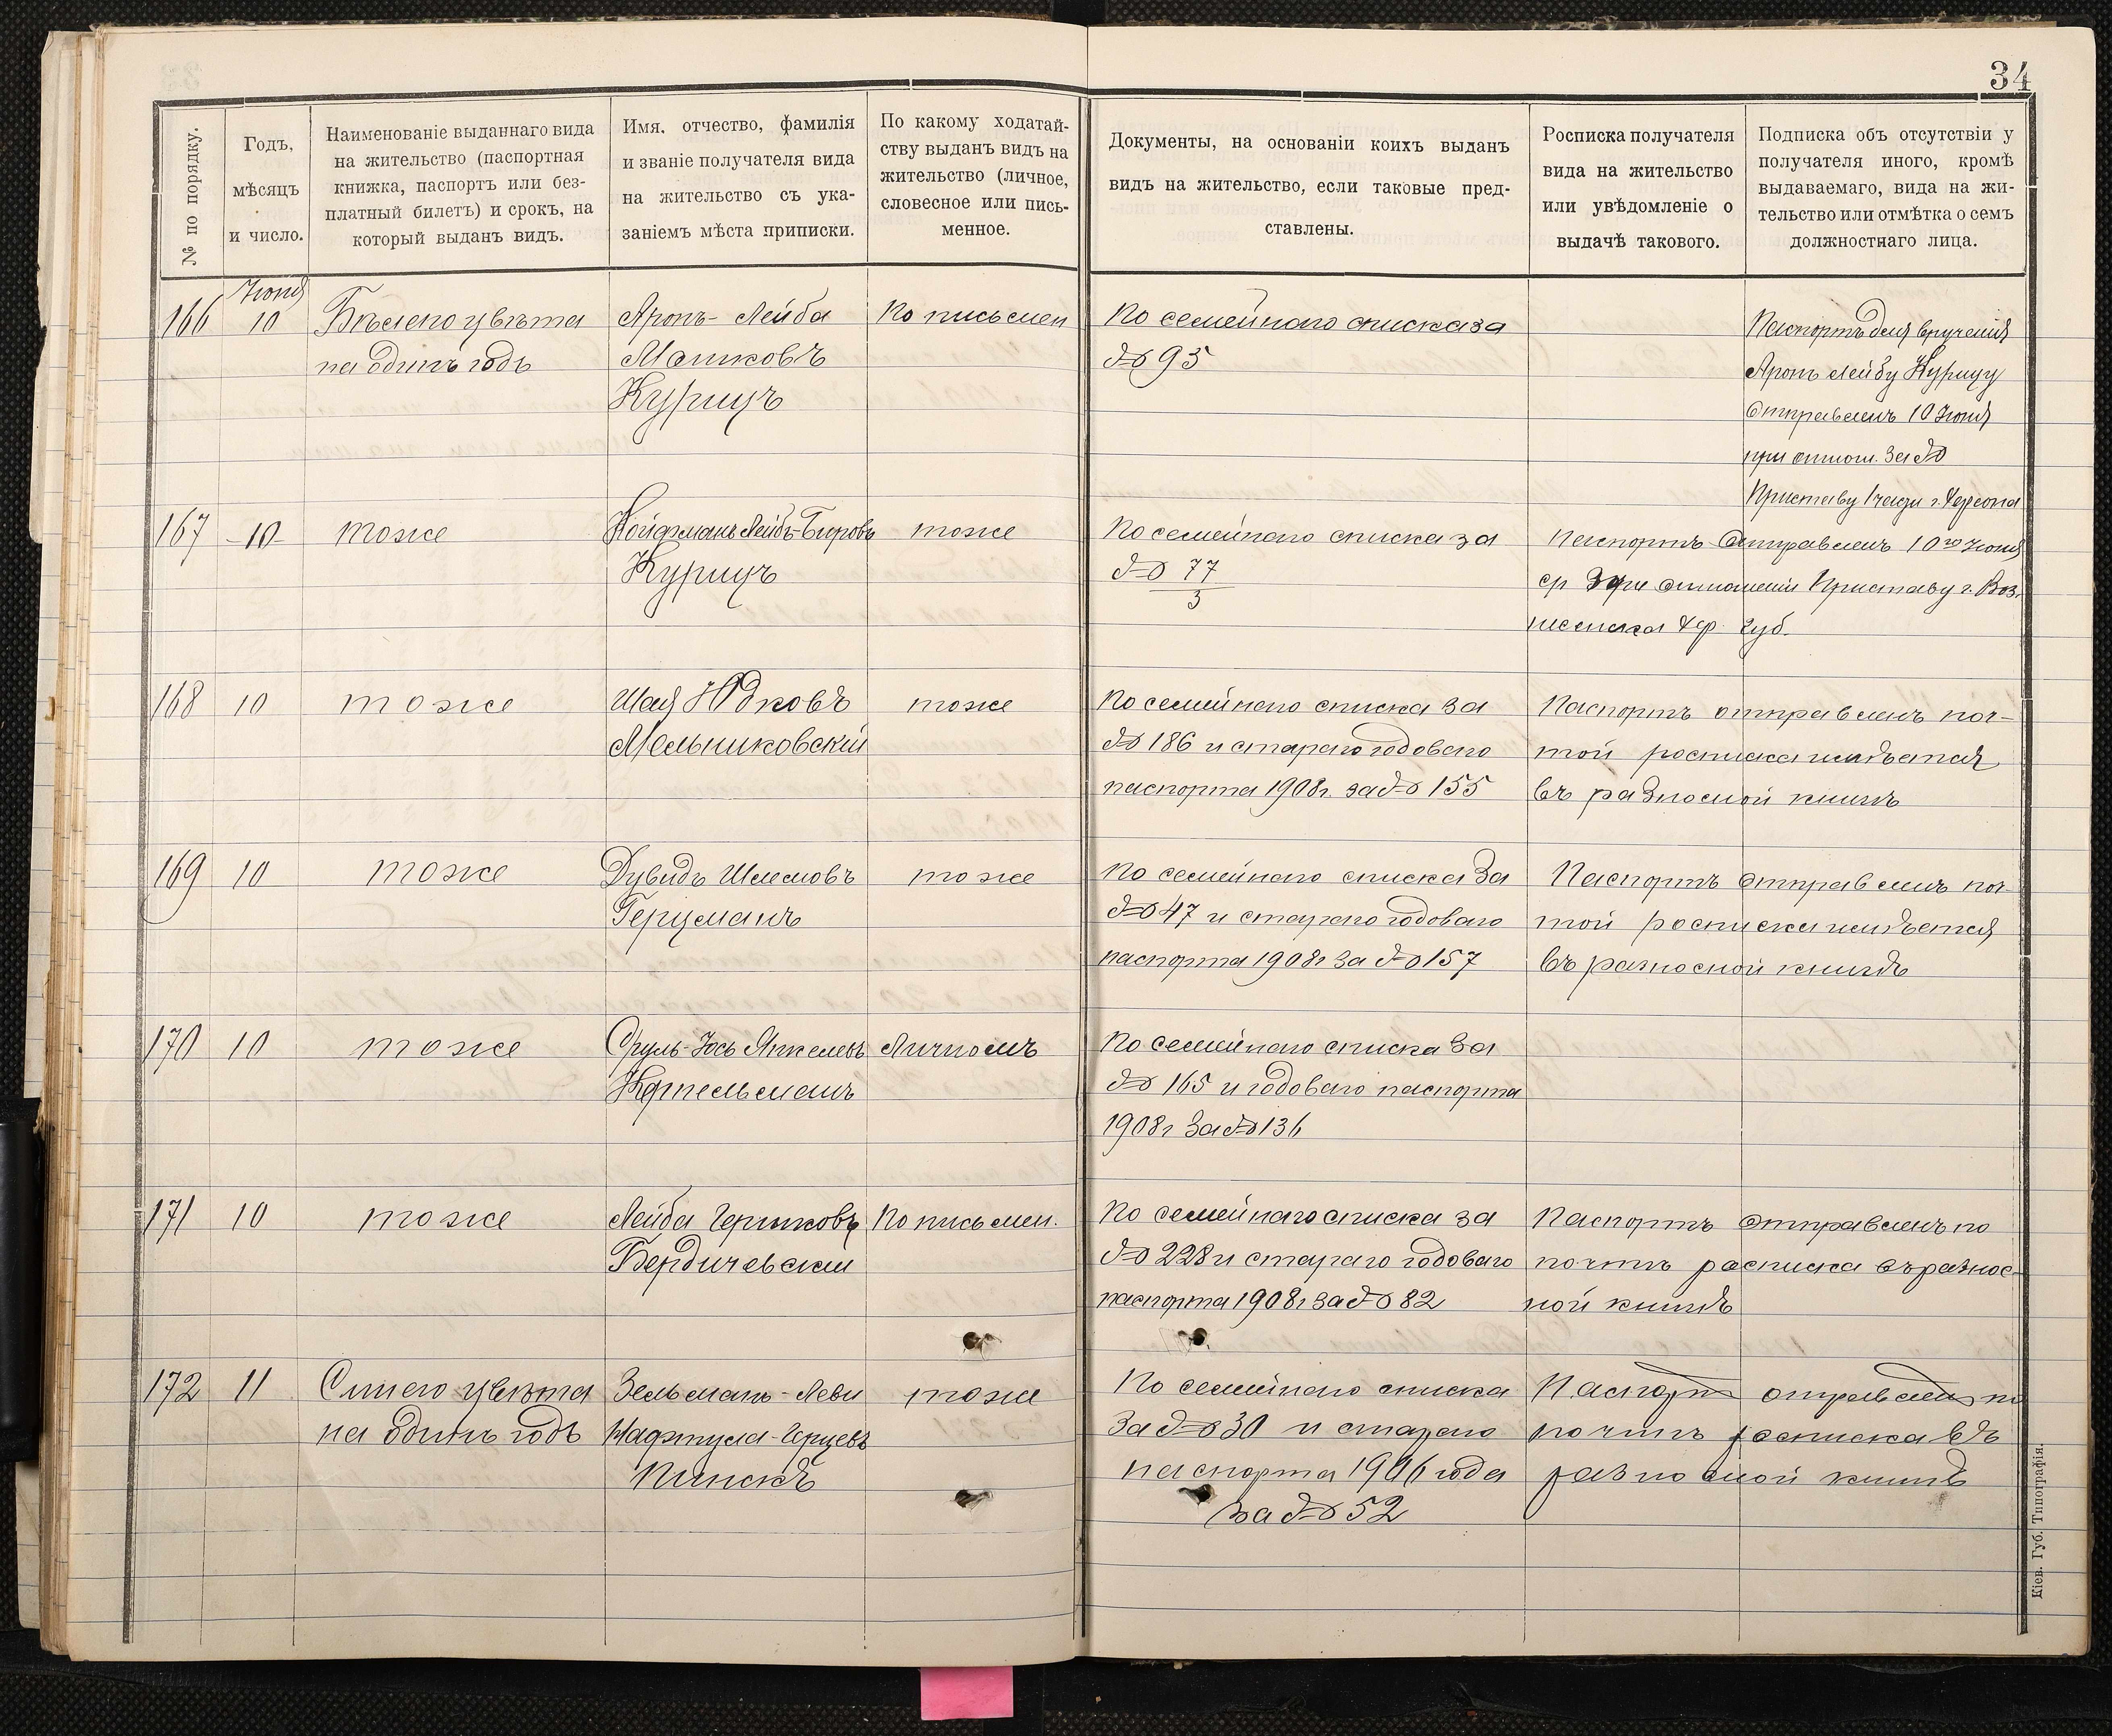 34
№ по порядку.
Годъ,
мѣсяцъ
и число.
Наименованіе выданнаго вида
на жительство (паспортная
книжка, паспортъ или без-
платный билетъ) и срокъ, на
который выданъ видъ.
Имя, отчество, фамилія
и званіе получателя вида
на жительство съ ука-
заніемъ мѣста приписки.
По какому ходатай-
ству выданъ видъ на
жительство (личное,
словесное или пись-
менное.
Документы, на основаніи коихъ выданъ
видъ на жительство, если таковые пред-
ставлены.
Росписка получателя
вида на жительство
или увѣдомленіе о
выдачѣ такового.
Подписка объ отсутствіи у
получателя иного, кромѣ
выдаваемаго, вида на жи-
тельство или отмѣтка о семъ
должностнаго лица.
166
Іюня
10
Бѣлаго цвѣта
на одинъ годъ
Аронъ-Лейба
Машковъ
Курицъ
По письмен
По семейнаго списка за
№ 95
Паспортъ для врученія
Аронъ Лейбу Курицу
Отправленъ 10 Іюня
при отнош. за №
Приставу 1 части г. Херсона
167
-10-
тоже
Лейбъ-Бировъ
Курицъ
тоже
По семейнаго списка за
№ 77
3
Паспортъ Отправленъ 10го Іюня
при отношеніи Приставу г. Воз.
несенска Хер. Губ.
168
10
тоже
Шая Юдковъ
Мельниковскій
тоже
По семейнаго списка за
№ 186 и стараго годоваго
паспорта 1908г. за № 155
Паспортъ отправленъ поч-
той росписка имѣется
въ разносной книгѣ
169
10
тоже
Дувидъ Шлемовъ
Герцманъ
тоже
По семейнаго списка за
№ 47 и стараго годоваго
паспорта 1908г за № 157
Паспортъ отправленъ поч-
той росписка имѣется
въ разносной книгѣ
170
10
тоже
Сруль-Іось Янкелевъ
Личномъ
По семейнаго списка за
№ 165 и годоваго паспорта
1908г за № 136
171
10
тоже
Лейба Гершковъ
Бердичевскій
По письмен.
По семейнаго списка за
№ 228 и стараго годоваго
паспорта 1908г за № 82
Паспортъ отправленъ по
почтѣ росписка въ разнос-
ной книгѣ
172
11
Синего цвѣта
на одинъ годъ
Зельманъ-Леви
Нафтула-Герцевъ
Пинскъ
тоже
По семейнаго списка
за № 30 и стараго
паспорта 1906 года
за № 52
Паспортъ отправленъ по
почтѣ росписка въ
разносной книгѣ
Кіев. Губ. Типографія.